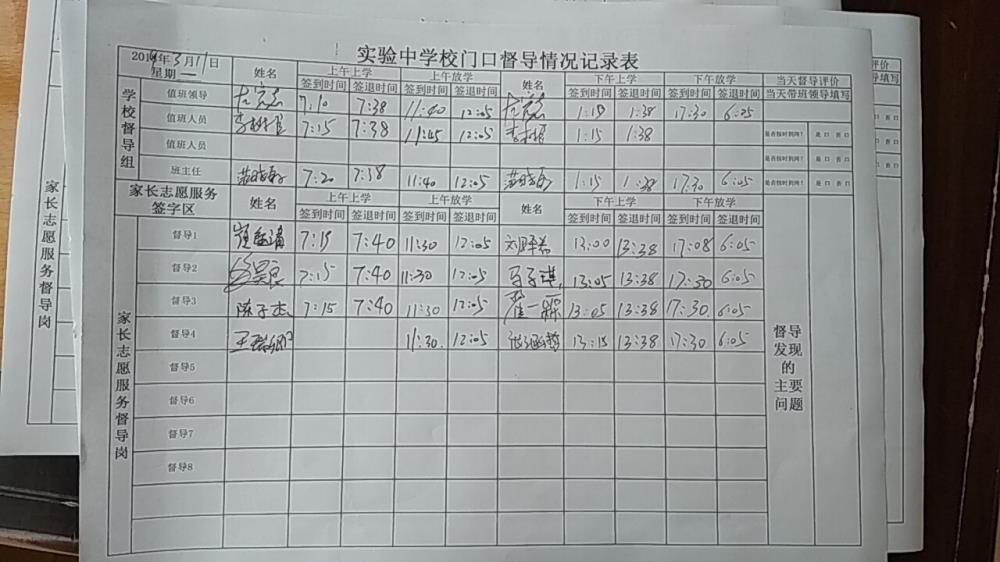 实验中学校门口督导情况记录表
2019年3月11日
星期一
姓名 上午上学 上午放学 姓名 下午上学 下午放学 当天督导评价
签到时间 签退时间 签到时间 签退时间 签到时间 签退时间 签到时间 签退时间 当天带班领导填写
学校督导组
值班领导 7:10 7:38 11:40 12:05 1:15 1:38 17:30 6:05
值班人员 7:15 7:38 11:45 12:05 1:15 1:38 是否按时到岗? 是口 否口
值班人员 是否按时到岗? 是口 否口
班主任 7:20 7:38 11:40 12:05 1:15 1:38 17:30 6:05 是否按时到岗? 是口 否口
家长志愿服务
签字区
姓名 上午上学 上午放学 姓名 下午上学 下午放学
签到时间 签退时间 签到时间 签退时间 签到时间 签退时间 签到时间 签退时间
家长志愿服务督导岗
督导1 7:15 7:40 11:30 12:05 13:00 13:38 17:08 6:05
督导2 7:15 7:40 11:30 12:05 马子琪 13:05 13:38 17:30 6:05
督导3 陈子杰 7:15 7:40 11:30 12:05 13:05 13:38 17:30 6:05
督导4 11:30 12:05 13:15 13:38 17:30 6:05
督导5
督导6
督导7
督导8
督导
发现
的
主要
问题
家长志愿服务督导岗
评价
导填写
否口
否口
否口